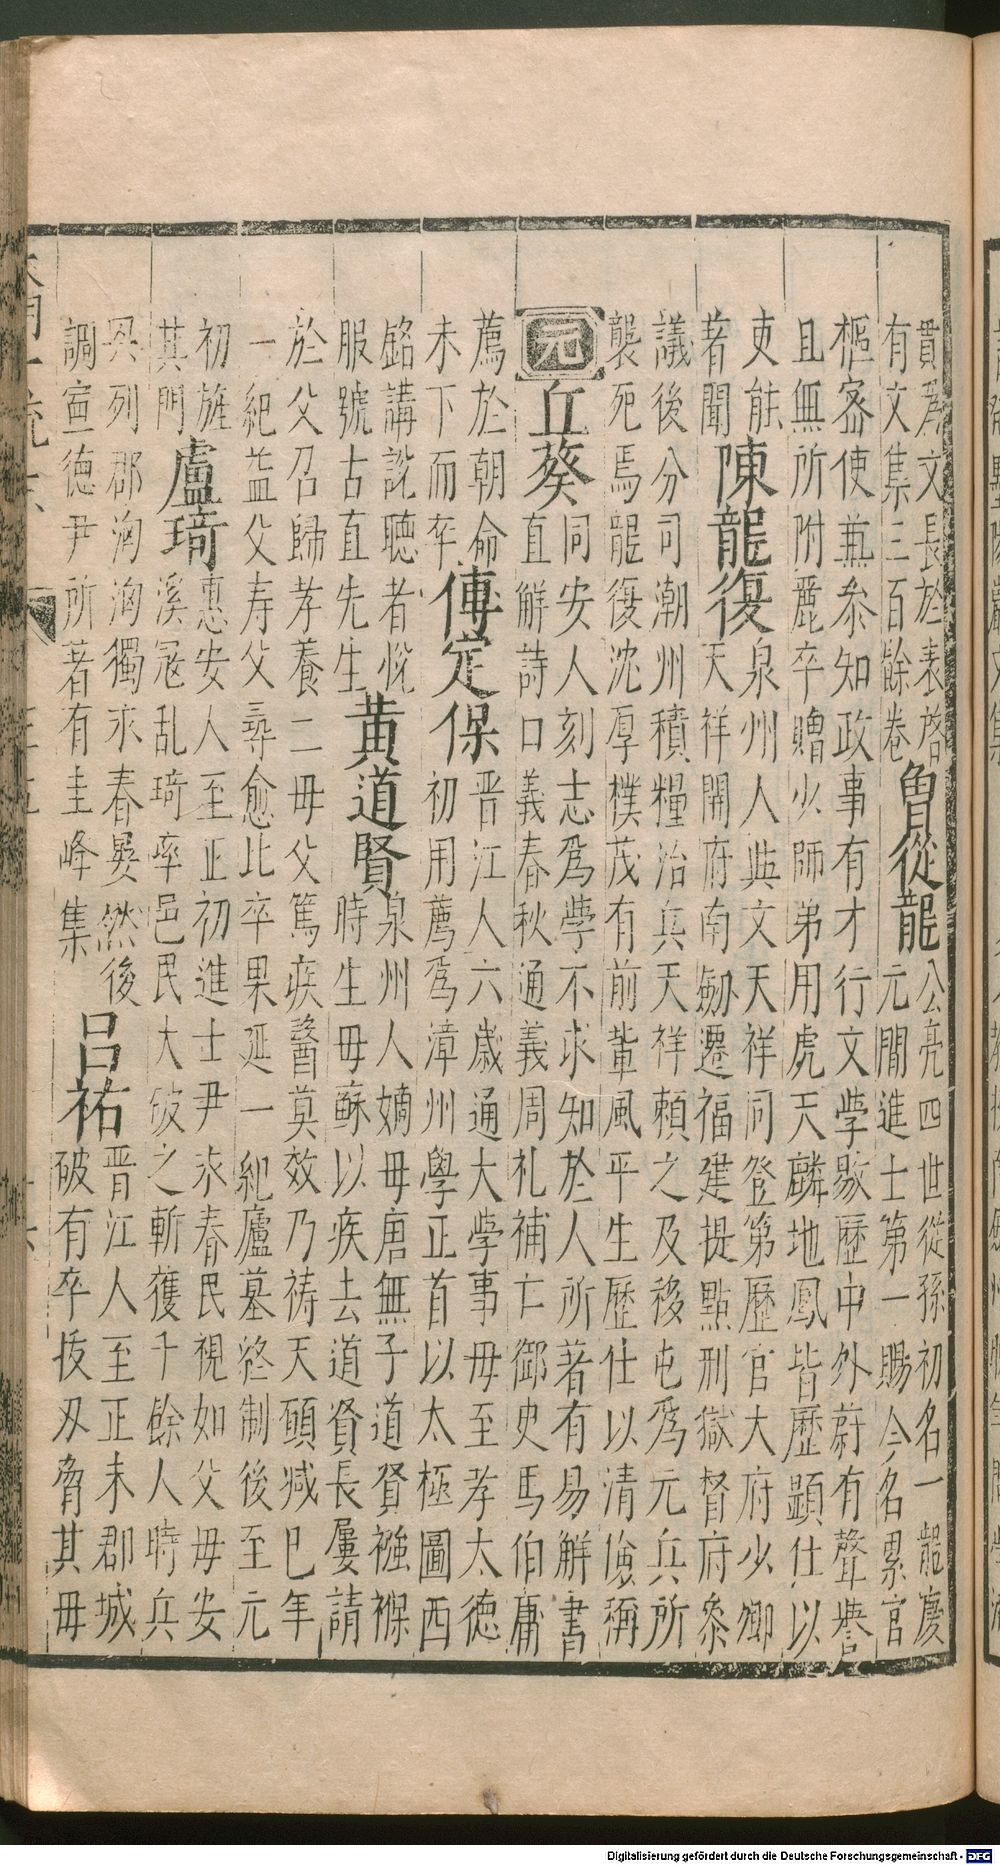 貫爲文長於表啓
有文集三百餘卷
曾從龍
公亮四世從孫初名一龍慶
元間進士第一賜今名累官
樞密使兼叅知政事有才行文學敭歷中外蔚有聲譽
且無所附麗卒贈少師弟用虎天麟地鳳皆歷顯仕以
吏能
著聞
陳龍復
泉州人與文天祥同登第歷官大府少卿
天祥開府南劒遷福建提點刑獄督府叅
議後分司潮州積糧治兵天祥賴之及移屯爲元兵所
襲死焉龍復沈厚樸茂有前輩風平生歷仕以清儉稱
元
丘葵
同安人刻志爲學不求知於人所著有易觧書
直觧詩口義春秋通義周礼補亡御史馬伯庸
薦於朝命
未下而卒
傅定保
晋江人六歲通大學事母至孝太德
初用薦爲漳州學正首以太極圖西
銘講說聽者悅
服號古直先生
黄道賢
泉州人嫡母唐無子道賢襁褓
時生母蘇以疾去道賢長屢請
於父召歸孝養二母父篤疾醫莫效乃祷天願减己年
一紀益父寿父尋愈比卒果延一紀廬墓終制後至元
初旌
其門
盧琦
惠安人至正初進士尹永春民視如父母安
溪冦乱琦率邑民大破之斬獲千餘人時兵
興列郡洶洶獨永春晏然後
調宣德尹所著有圭峰集
吕祐
晋江人至正末郡城
破有卒抜刃脅其母
三百五
十六
Digitalisierung gefördert durch die Deutsche Forschungsgemeinschaft - DFG